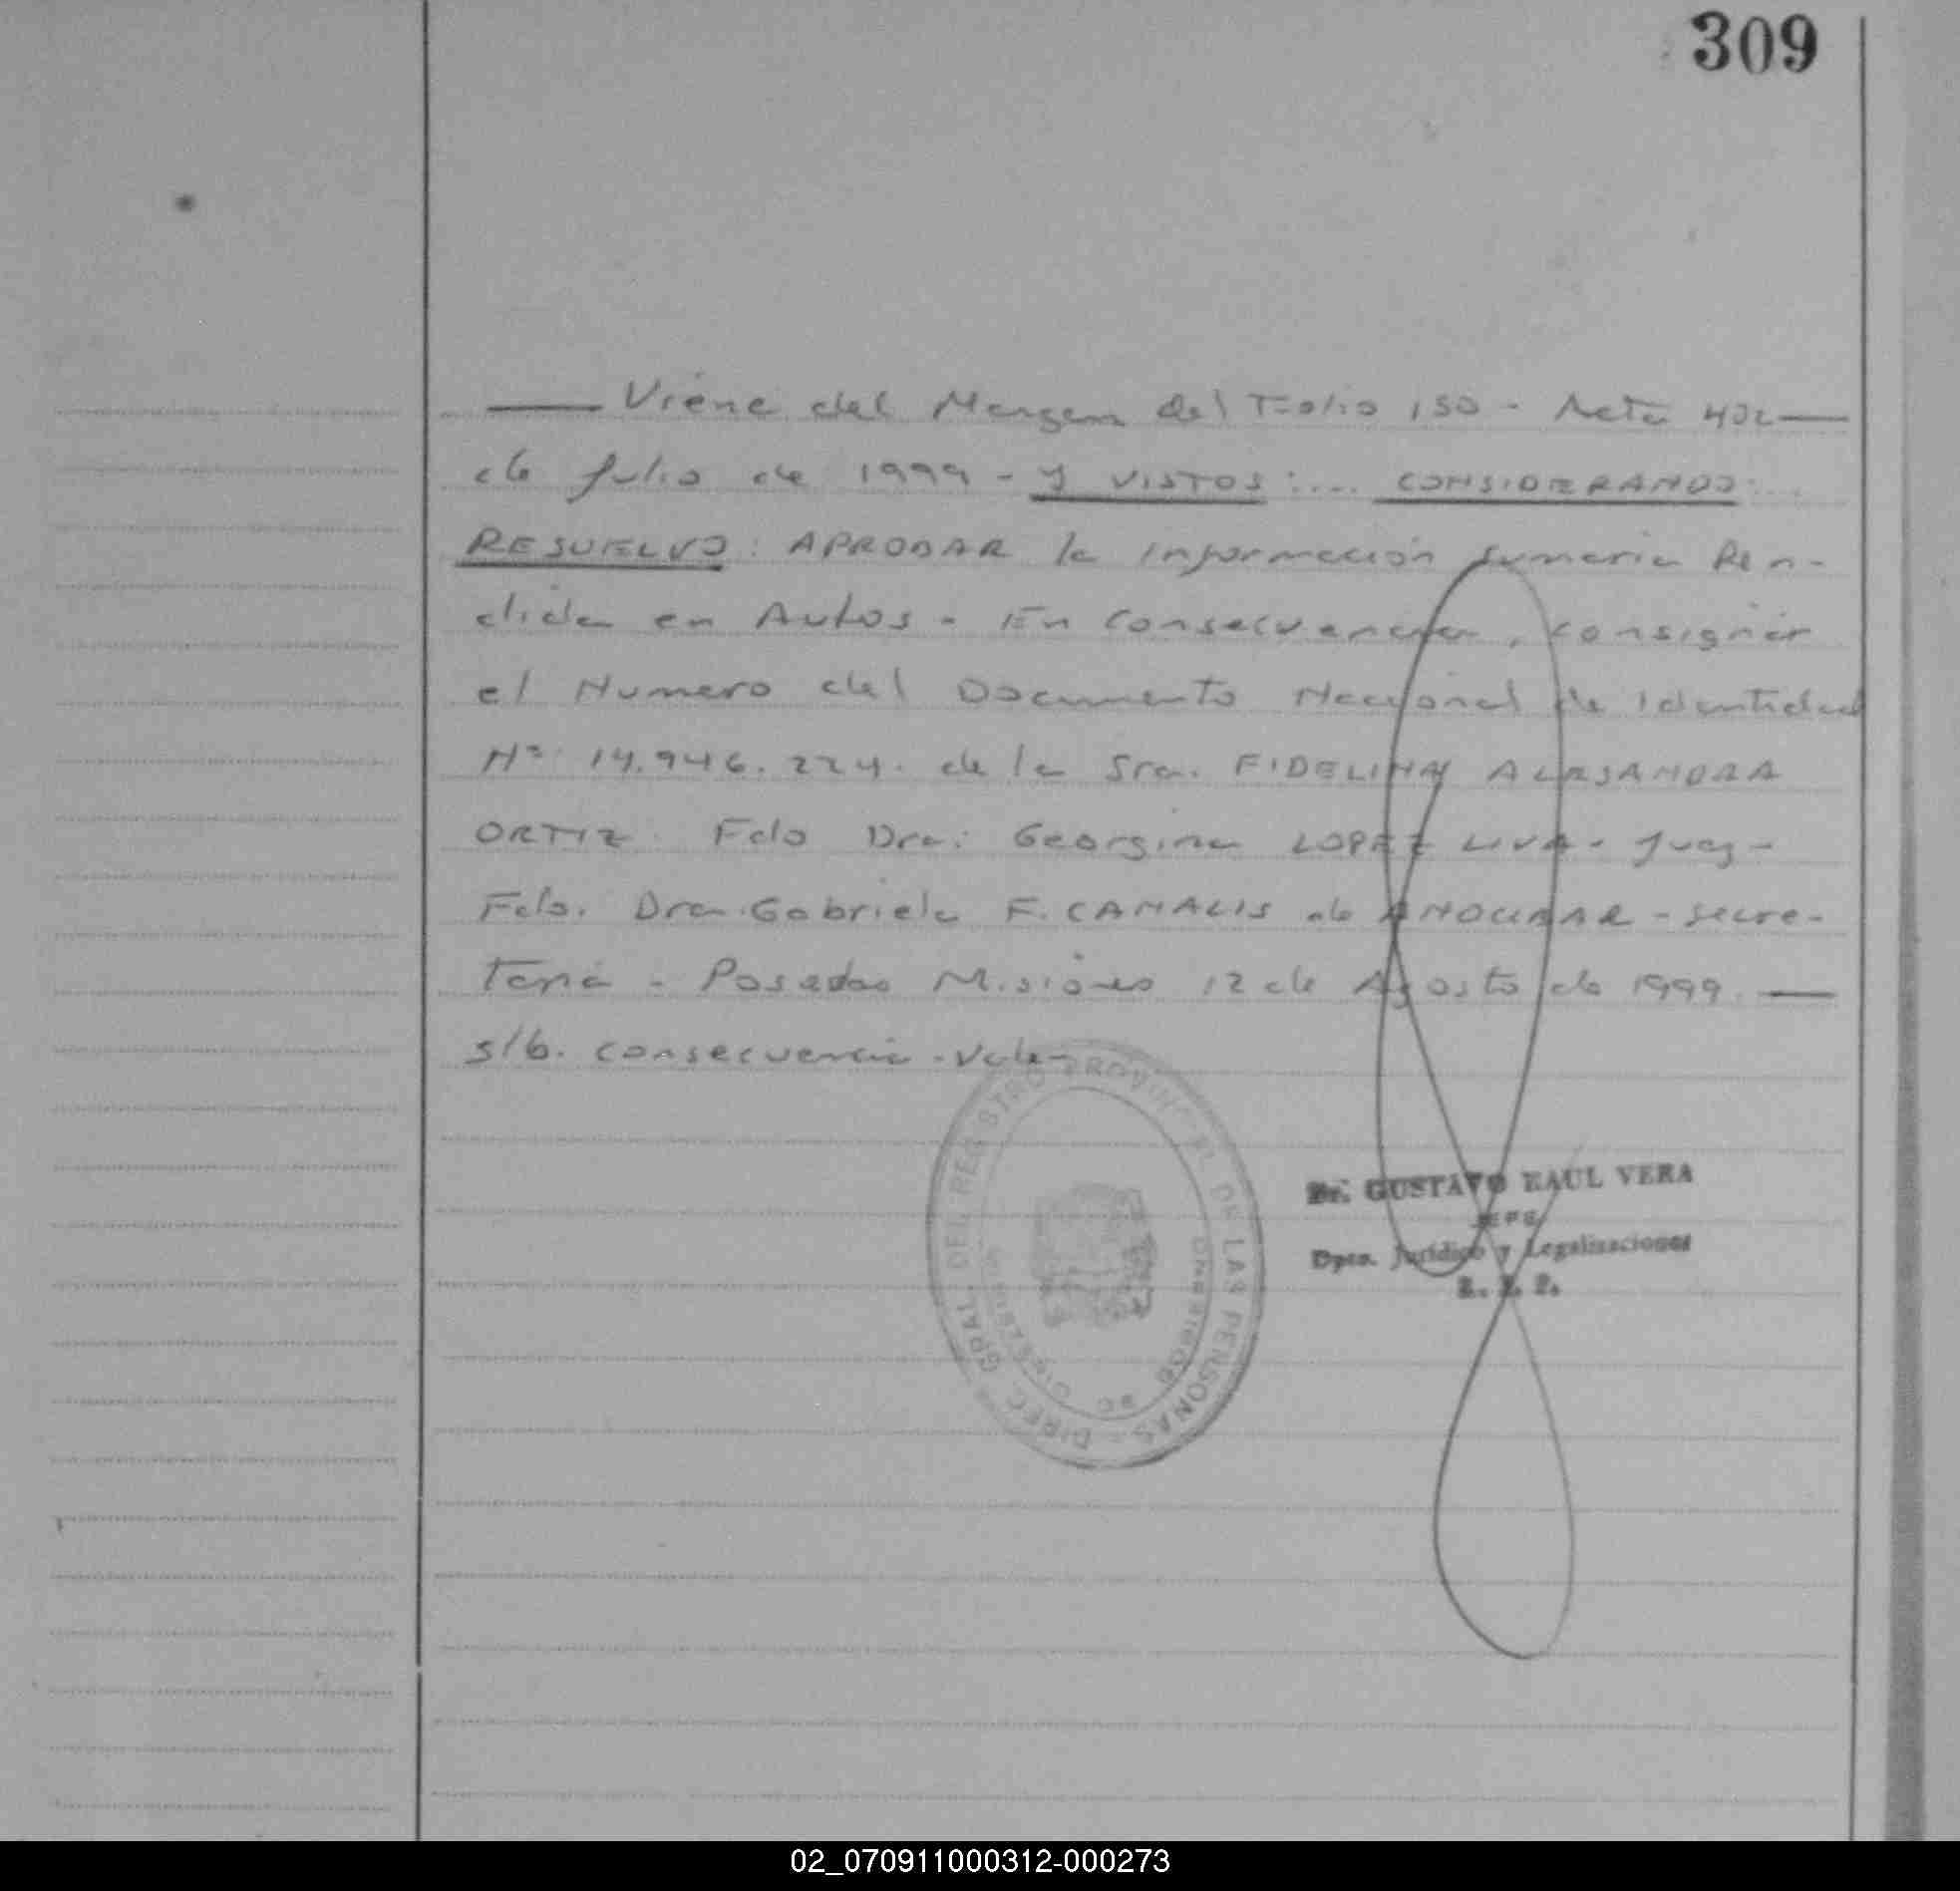 309
Viene del Margen del Folio 150 - Acta 432
de Julio de 1999 - Y VISTOS: .... CONSIDERANDO: ...
RESUELVO: APROBAR la Información Sumaria Ren-
dida en Autos - En Consecuencia, consignar
el Numero del Documento Nacional de Identidad
Nº 14.946.224. de la Sra. FIDELINA ALEJANDRA
ORTIZ. Fdo Dra: Georgina LOPEZ LIVA - Juez -
Fdo. Dra. Gabriela F. CANALIS de - Secre-
taria - Posadas Misiones 12 de Agosto de 1999.
s/b. consecuencia - Vale -
DIREC. GRAL. DEL REGISTRO PROVINCIAL DE LAS PERSONAS
Dr. GUSTAVO RAUL VERA
JEFE
Dpto. Jurídico y Legalizaciones
R. P. P.
02_070911000312-000273